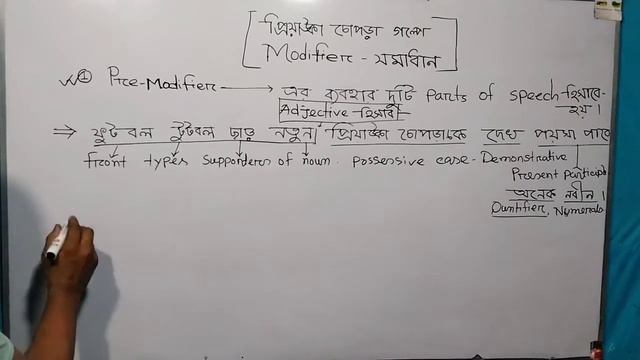 প্রিয়াঙ্কা চোপড়া গল্পে
Modifier - সমাধান
① Pre-Modifier → এর ব্যবহার দুটি Parts of speech হিসাবে-
হয় ।
Adjective হিসাবে
⇒ ফুটবল টুটবল ছাড় নতুন। প্রিয়াঙ্কা চোপড়াকে দেখ পয়সা পাবে
front types supporders of noun. Possessive case - Demonstrative
Present participle
অনেক নবীন ।
Quntifier, Numerals